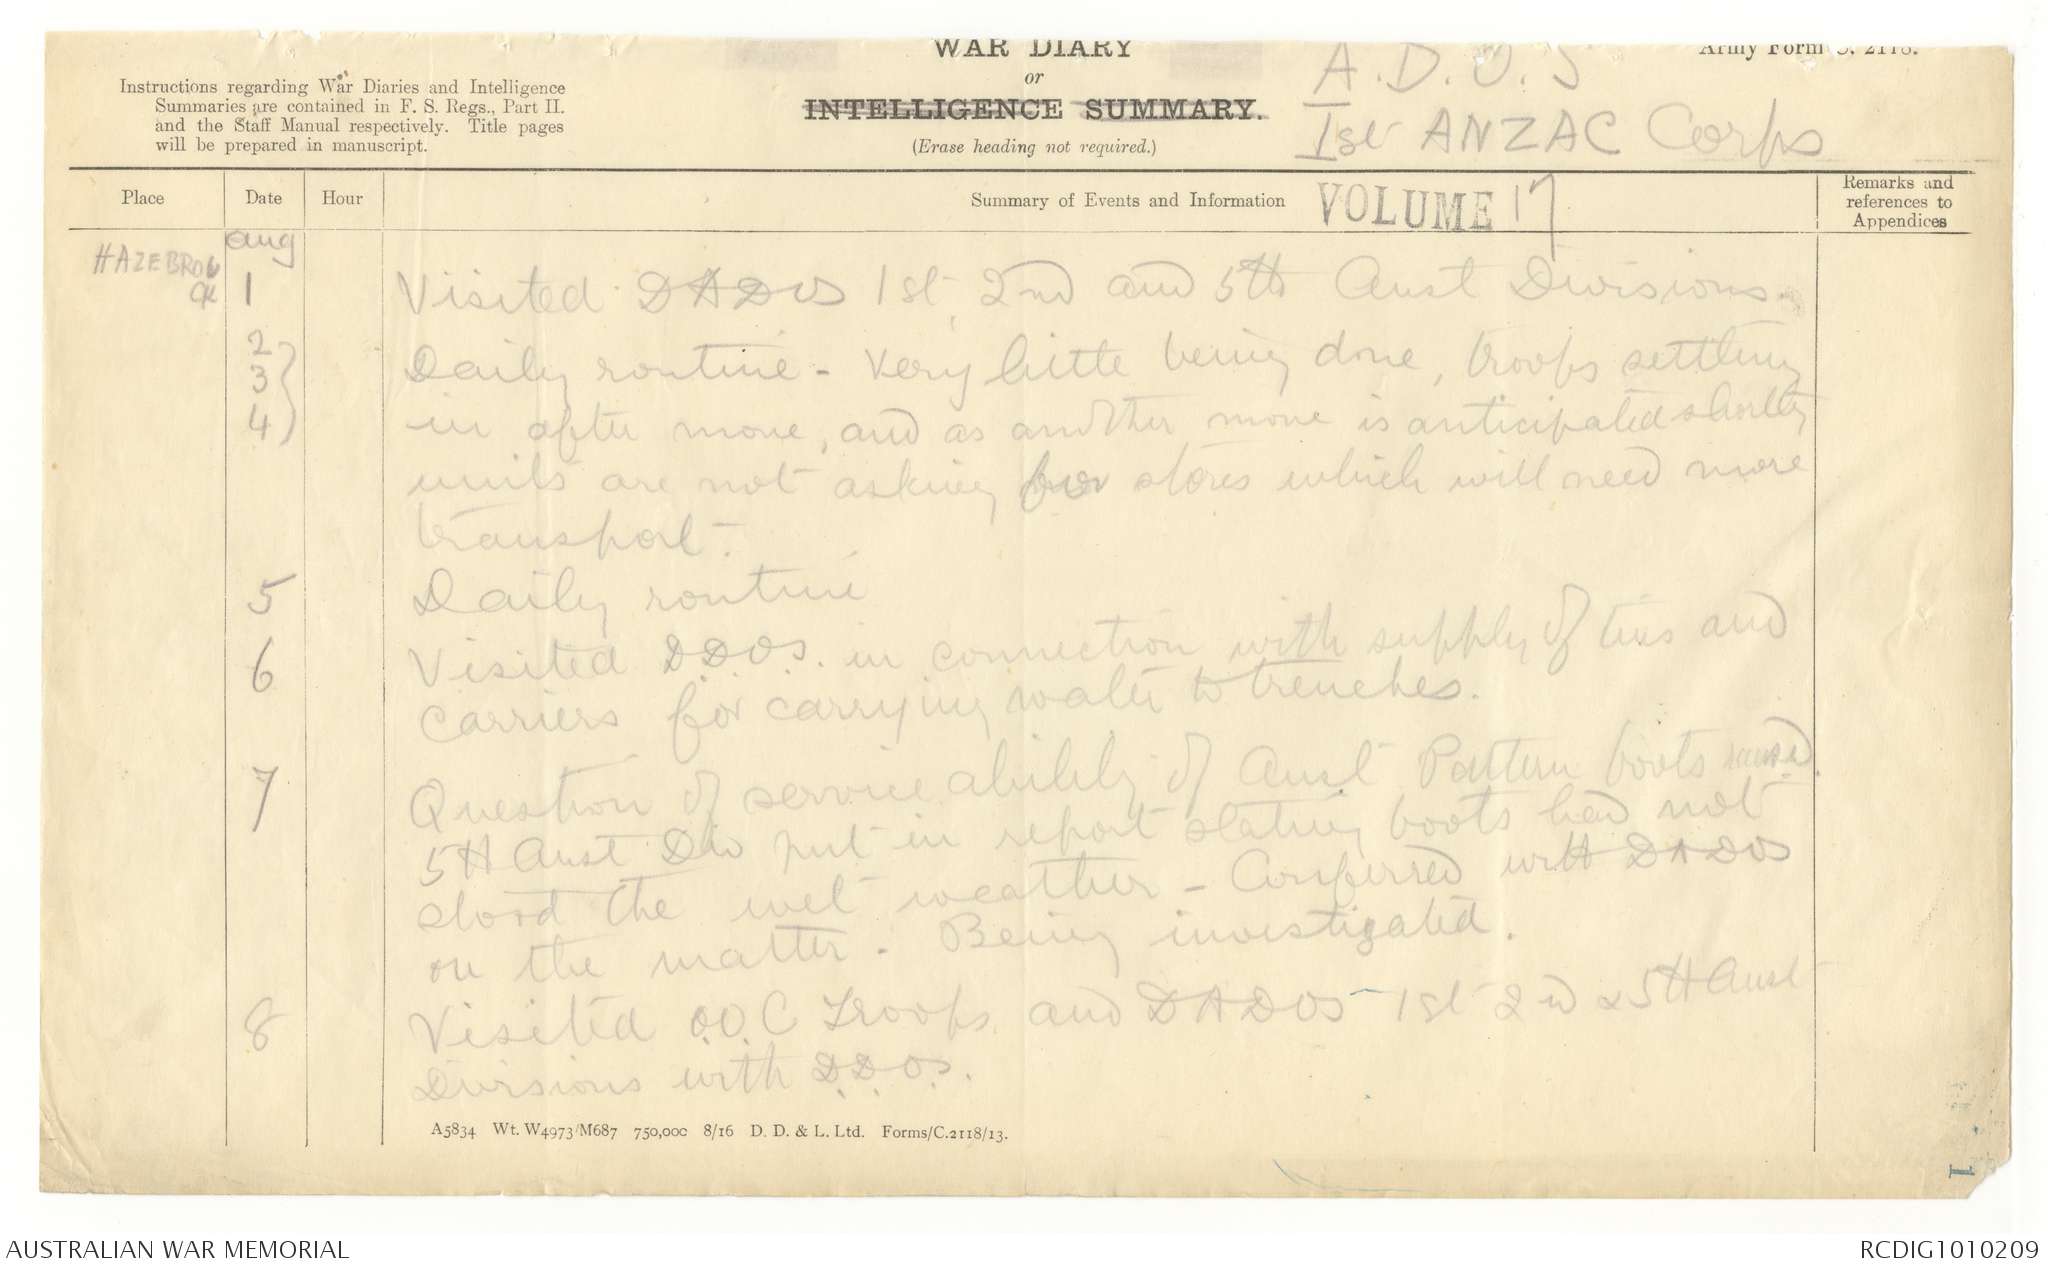 WAR DIARY
or
INTELLIGENCE SUMMARY.
(Erase heading not required.)
Army Form C. 2118.
Instructions regarding War Diaries and Intelligence
Summaries are contained in F. S. Regs., Part II.
and the Staff Manual respectively. Title pages
will be prepared in manuscript.
A.D.O.S
1st ANZAC Corps
Place
Date
Hour
Summary of Events and Information
VOLUME 17
Remarks and
references to
Appendices
HAZEBROU
CK
Aug
1
Visited DADOS 1st, 2nd and 5th Aust Divisions.
2
3
4
Daily routine - Very little being done, troops settling
in after move, and as another move is anticipated shortly
units are not asking for stores which will need more
transport.
5
Daily routine
6
Visited D.D.O.S. in connection with supply of tins and
carriers for carrying water to trenches.
7
Question of serviceability of Aust Pattern boots raised.
5th Aust Div put in report stating boots had not
stood the wet weather - Conferred with DADOS
on the matter. Being investigated.
8
Visited O.O.C Troops and DADOS 1st 2nd & 5th Aust
Divisions with D.D.O.S.
A5834 Wt. W4973/M687 750,000 8/16 D. D. & L. Ltd. Forms/C.2118/13.
1
AUSTRALIAN WAR MEMORIAL
RCDIG1010209